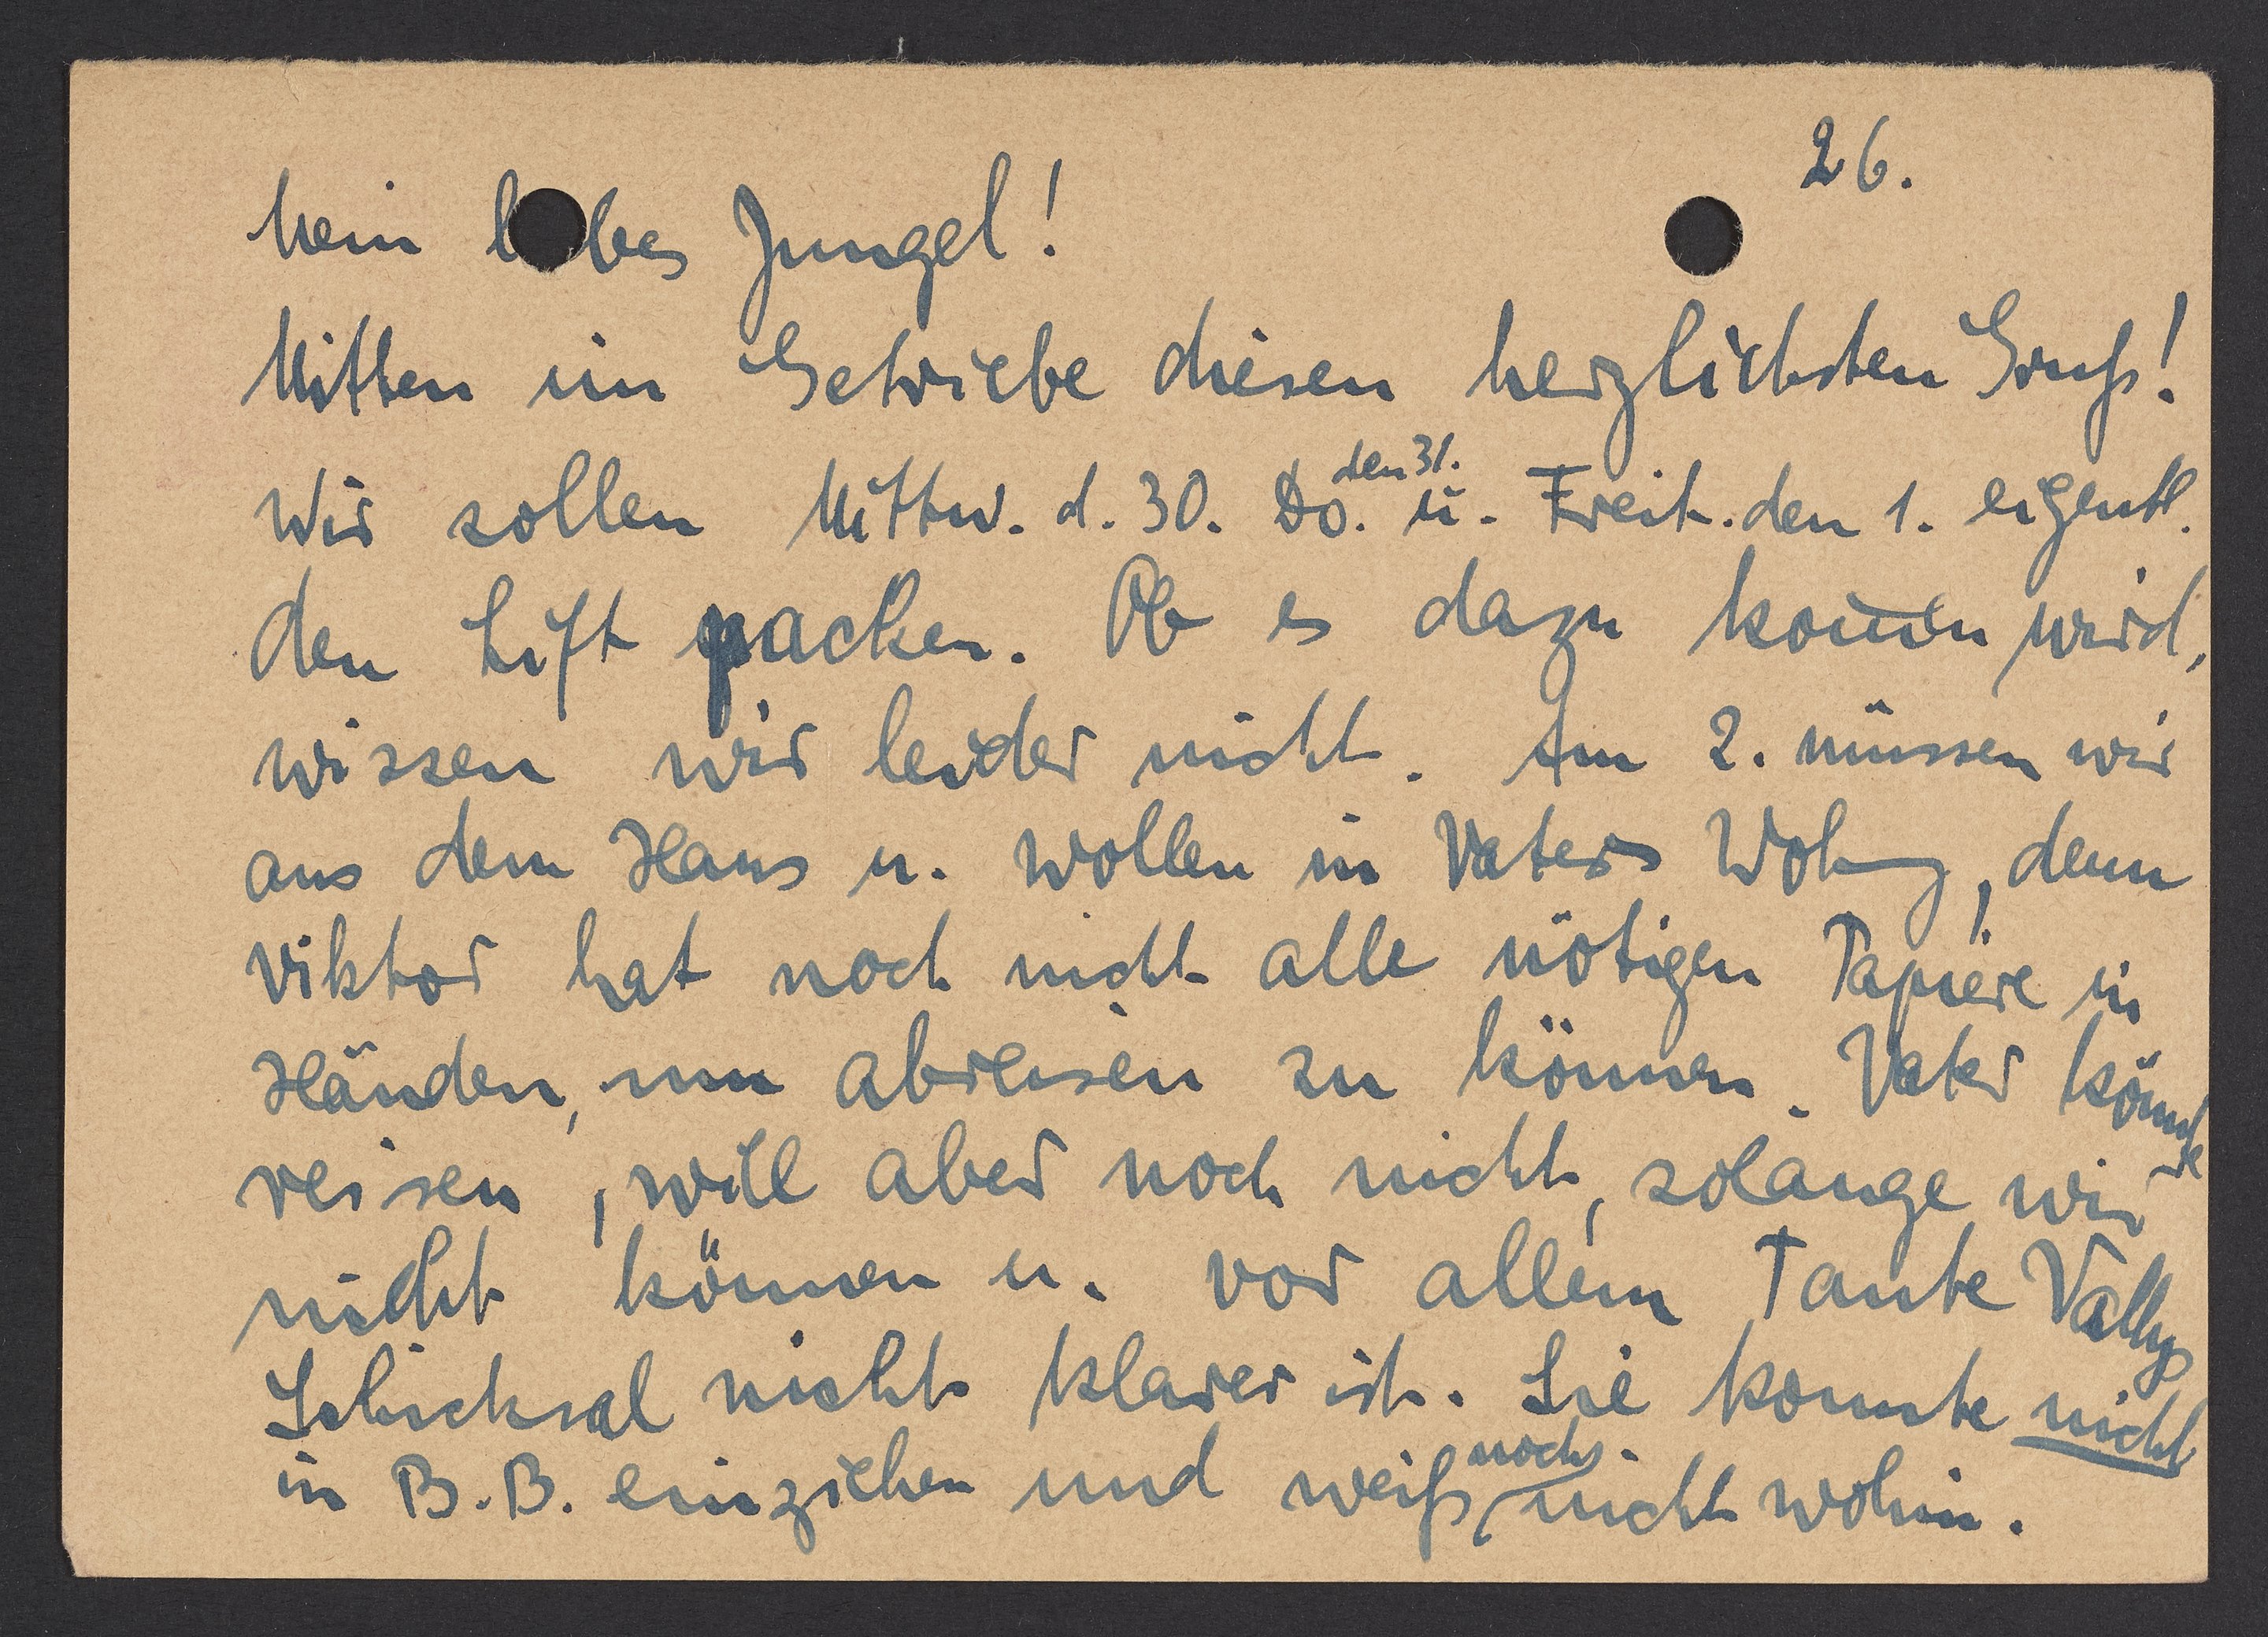 26.
Mein liebes Jungel!
Mitten im Getriebe diesen herzlichsten Gruß!
Wir sollen Mittw. d. 30. Do. den 31. u. Freit. den 1. eigentl.
den Lift packen. Ob es dazu kom̄en wird,
wissen wir leider nicht. Am 2. müssen wir
aus dem Haus u. wollen in Vaters Wohng, denn
Viktor hat noch nicht alle nötigen Papiere in
Händen, um abreisen zu können. Vater könnte
reisen, will aber noch nicht, solange wir
nicht können u. vor allem Tante Vallys
Schicksal nicht klarer ist. Sie konnte nicht
in B.B. einziehen und weiß noch nicht wohin.